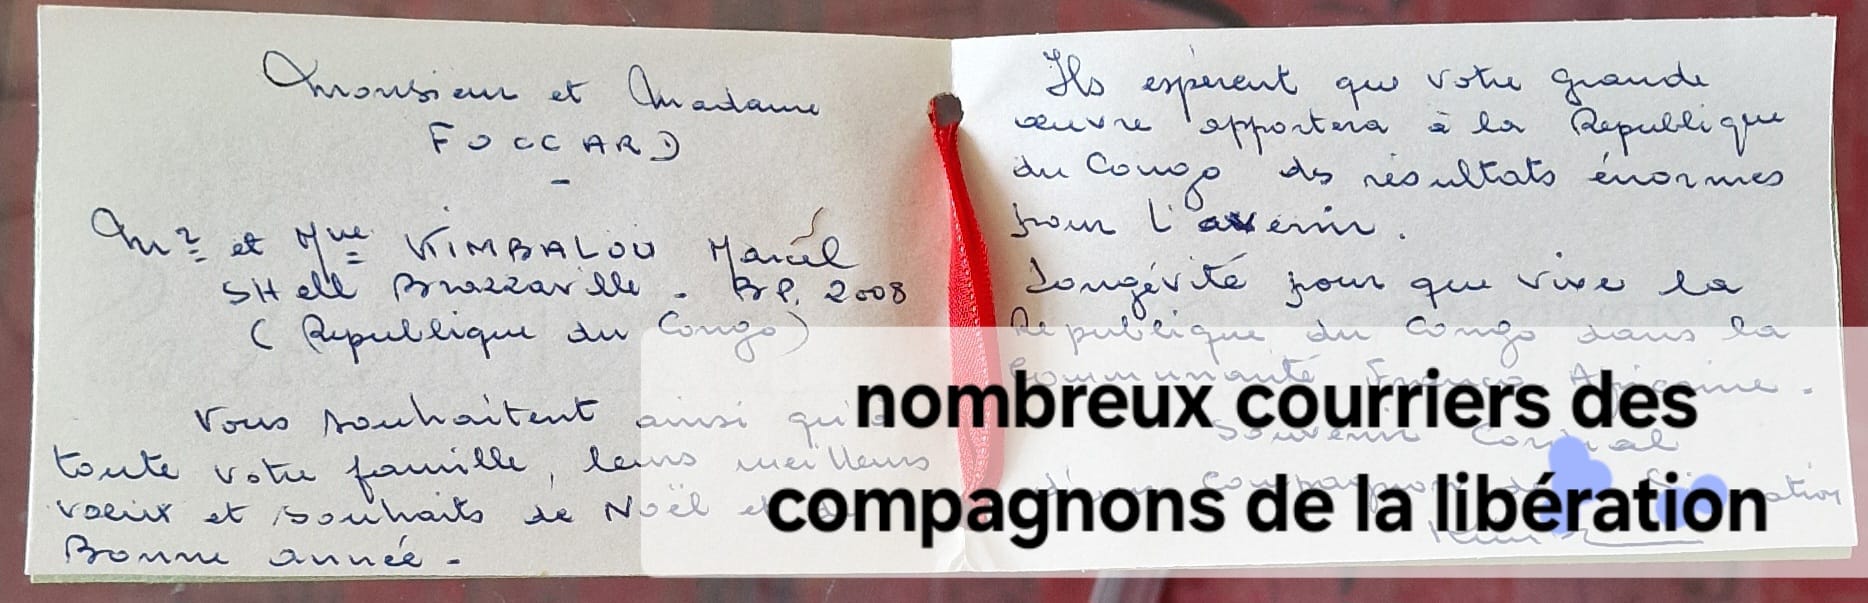 Monsieur et Madame
FOCCARD
-
Mr et Mme KIMBALOU Marcel
SHell Brazzaville - BP. 2008
(Republique du Congo)
Vous souhaitent ainsi qu'à
toute votre famille, leurs meilleurs
voeux et souhaits de Noël et de
Bonne année -
Ils espèrent que votre grande
œuvre apportera à la Republique
du Congo des résultats énormes
pour l'avenir.
Longévité pour que vive la
Republique du Congo dans la
Communauté Franco Africaine.
Souvenir Cordial
d'un compagnon de libération
nombreux courriers des
compagnons de la libération